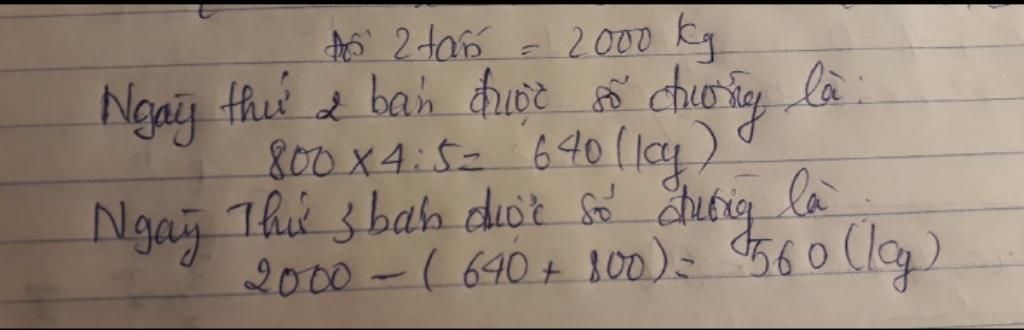 2 tấn = 2000 kg
Ngày thứ 2 bán được số đường là:
800 x 4 : 5 = 640 (kg)
Ngày Thứ 3 bán được số đường là:
2000 - ( 640 + 800 ) = 560 (kg)